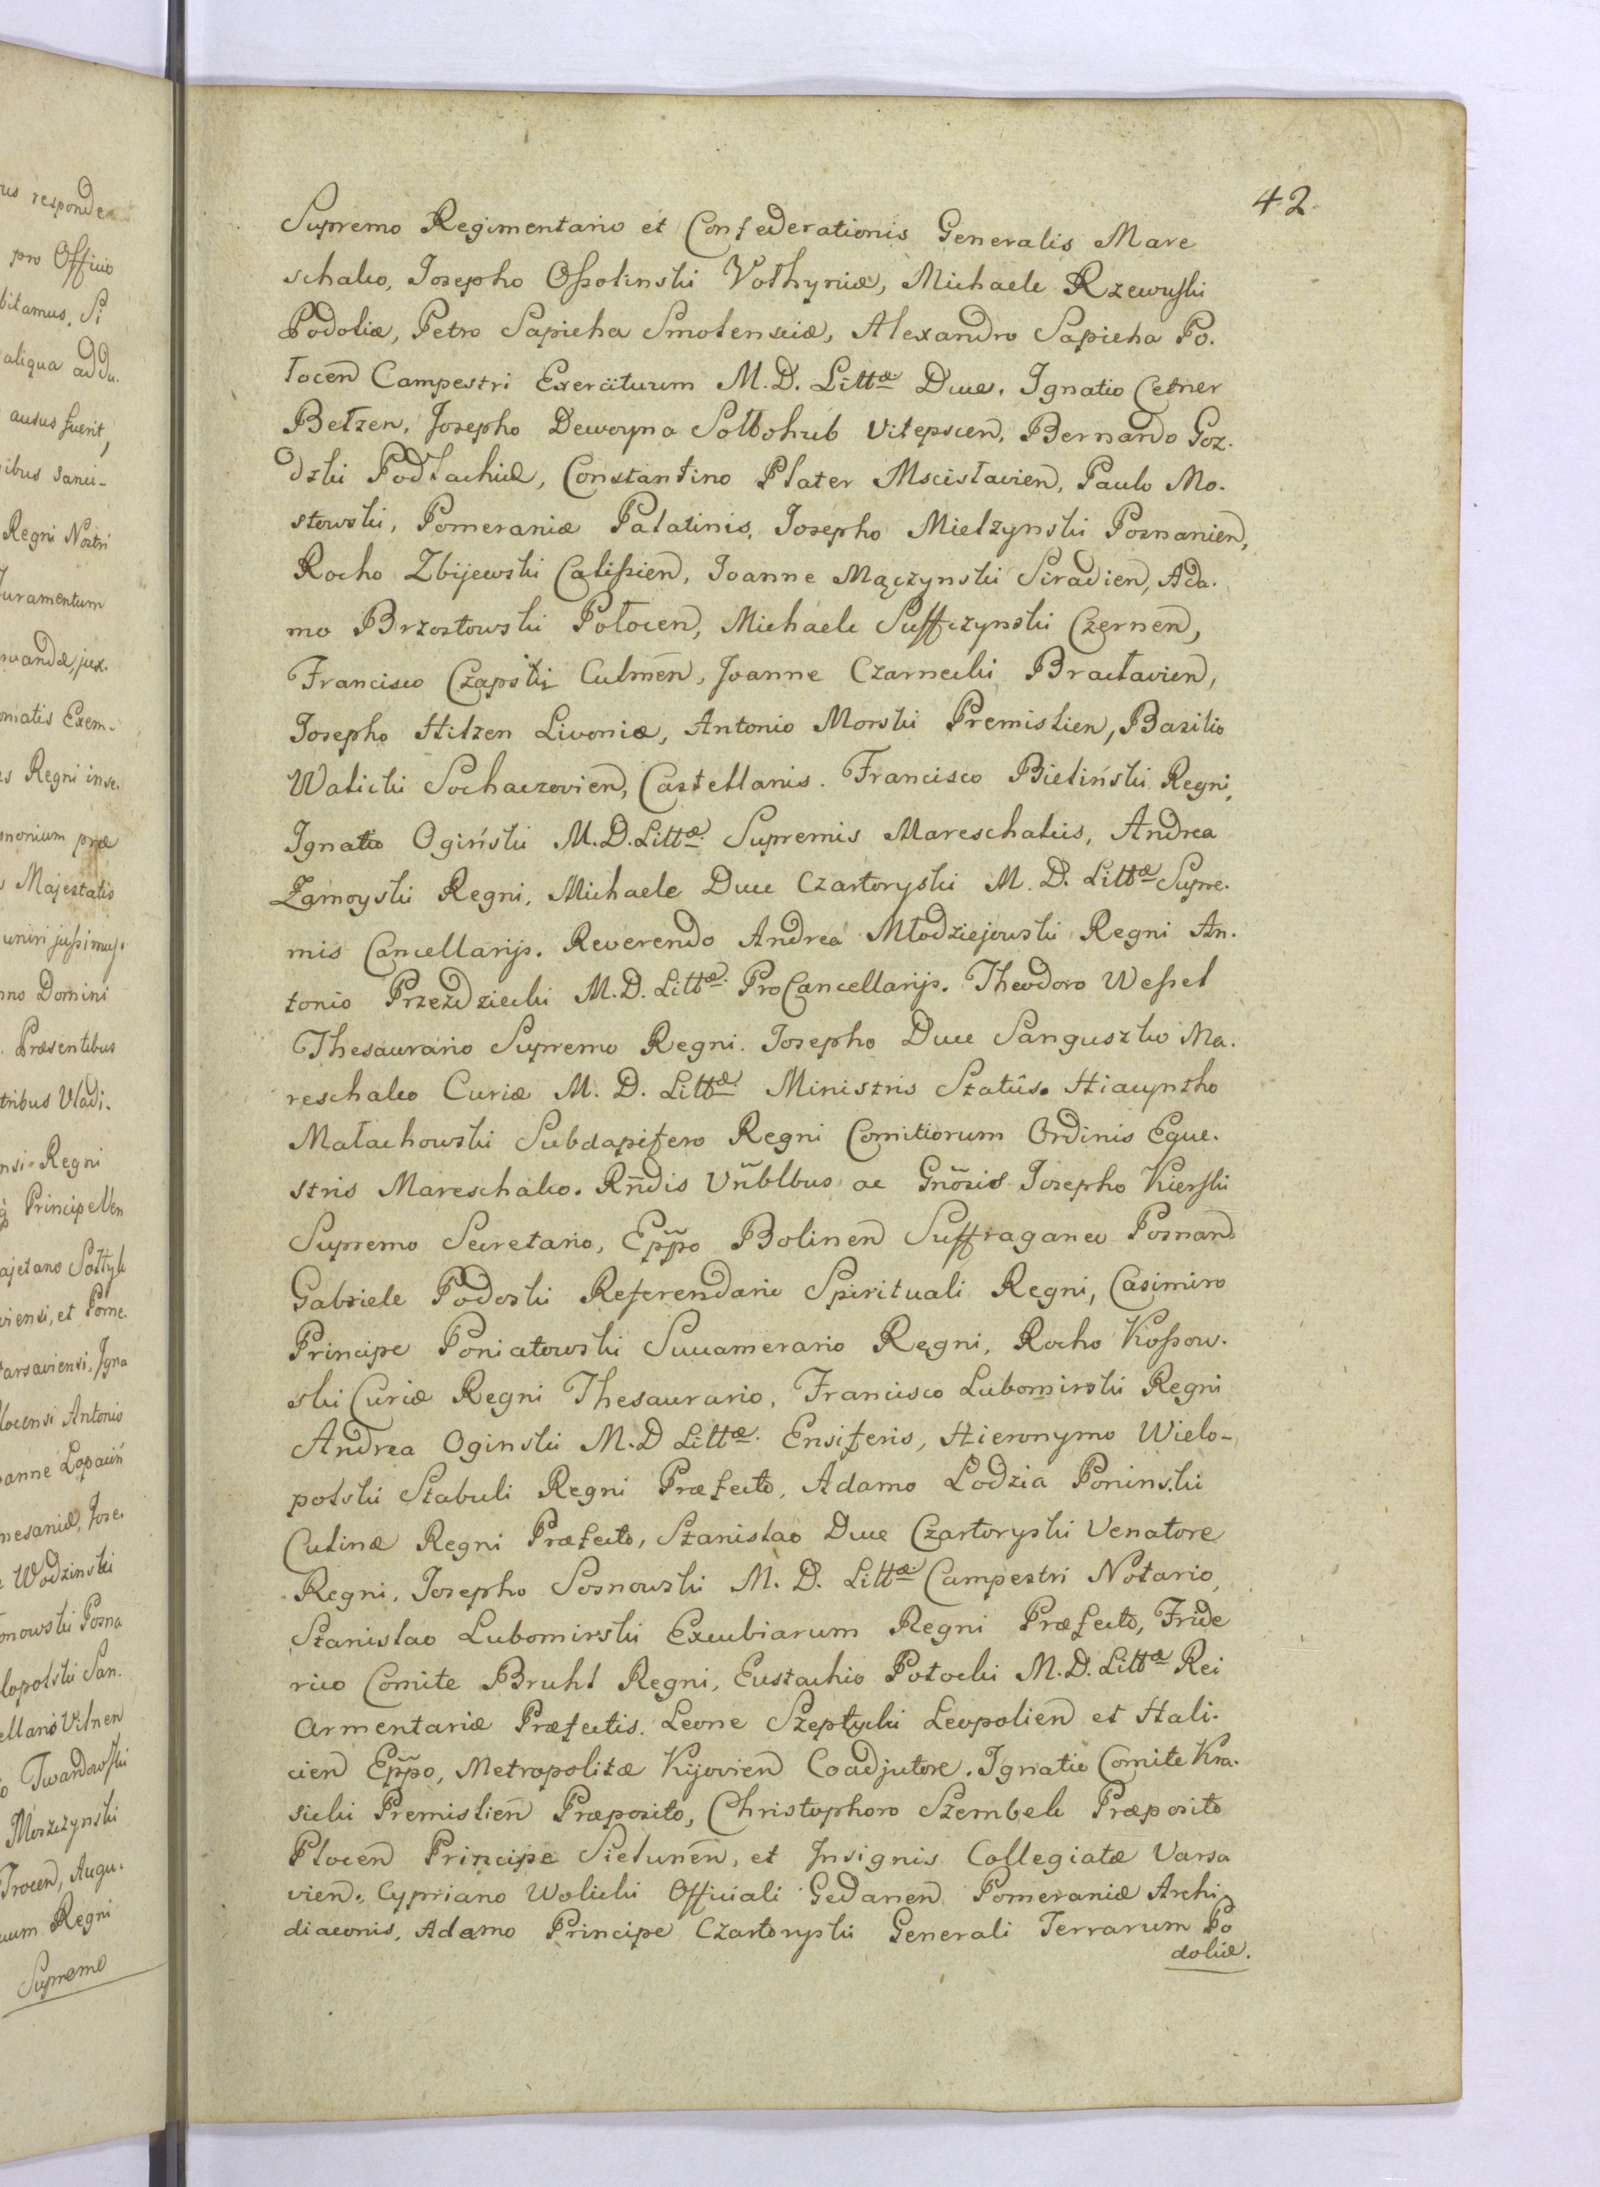 us responde
pro Officio
bitamus. Si
aliqua addu.
ausus fuerit,
ibus sanci-
Regni Nostri
Juramentum
rvandæ, jux.
omatis Exem-
es Regni inse.
monium præ
s Majestatis
uniri jussimus.
nno Domini
Præsentibus
tribus Vladi.
nsi Regni
Principe
ajetano Sołtyk
viensi, et Pome.
arsaviensi, Igna
locensi Antonio
oanne Łopacin
mesaniæ, Jose.
Wodzinski
onowski Posna
lopolski San.
ellano Vilnen
Twardowski
Moszczynski
Trocen, Augu.
uum Regni
Supremo
42.
Supremo Regimentario et Confæderationis Generalis Mare
schalco, Josepho Ossolinski Vołhyniæ, Michaele Rzewuski
Podoliæ, Petro Sapieha Smolensciæ, Alexandro Sapieha Po.
łocen̄ Campestri Exercituum M. D. Littæ Duce. Ignatio Cetner
Bełzen, Josepho Deweyna Sołłohub Vitepscen, Bernardo Goz.
dzki Podlachiæ, Constantino Plater Mscislavien, Paulo Mo.
stowski, Pomeraniæ Palatinis, Josepho Mielzynski Posnanien,
Rocho Zbijewski Calissien, Joanne Mączynski Siradien, Ada.
mo Brzostowski Połocen, Michaele Suffczynski Czernen,
Francisco Czapski Culmen, Joanne Czarnecki Bracłavien,
Josepho Hilzen Livoniæ, Antonio Morski Premislien, Basilio
Walicki Sochaczovien, Castellanis. Francisco Bieliński Regni,
Ignatio Ogiński M. D. Littæ Supremis Mareschalcis, Andrea
Zamoyski Regni, Michaele Duce Czartoryski M. D. Littæ Supre.
mis Cancellarijs. Reverendo Andrea Młodziejowski Regni An.
tonio Przezdziecki M. D. Littæ ProCancellarijs. Theodoro Wessel
Thesaurario Supremo Regni. Josepho Duce Sanguszko Ma.
reschalco Curiæ M. D. Littæ Ministris Statûs. Hiacyntho
Małachowski Subdapifero Regni Comitiorum Ordinis Eque.
stris Mareschalco. Rñdis Vñblbus ac Gñosis Josepho Kierski
Supremo Secretario, Epp̃o Bolinen Suffraganeo Posnan
Gabriele Podoski Referendario Spirituali Regni, Casimiro
Principe Poniatowski Succamerario Regni, Rocho Kossow.
ski Curiæ Regni Thesaurario, Francisco Lubomirski Regni
Andrea Oginski M. D Littæ. Ensiferis, Hieronymo Wielo-
polski Stabuli Regni Præfecto, Adamo Lodzia Poninski
Culinæ Regni Præfecto, Stanislao Duce Czartoryski Venatore
Regni, Josepho Sosnowski M. D. Littæ Campestri Notario,
Stanislao Lubomirski Excubiarum Regni Præfecto, Fride
rico Comite Bruhl Regni, Eustachio Potocki M. D. Littæ Rei
Armentariæ Præfectis. Leone Szeptycki Leopolien et Hali.
cien Epp̃o, Metropolitæ Kijovien Coadjutore. Ignatio Comite Kra.
sicki Premislien̄ Præposito, Christophoro Szembek Præposito
Plocen Principe Sielunen̄, et Insignis Collegiatæ Varsa
vien. Cypriano Wolicki Officiali Gedanen Pomeraniæ Archi
diaconis, Adamo Principe Czartoryski Generali Terrarum Po
doliæ.